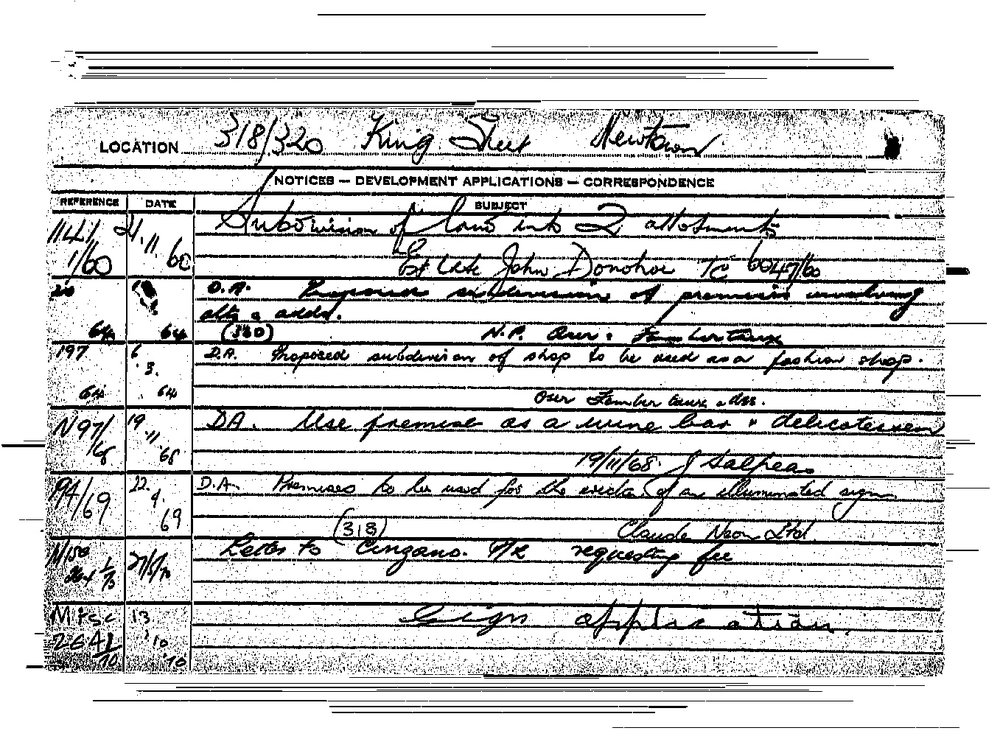 LOCATION 318/320 King Street Newtown
NOTICES – DEVELOPMENT APPLICATIONS – CORRESPONDENCE
REFERENCE DATE SUBJECT
1/60 21.11.60 Subdivision of land into 2 allotments
Est Late John Donohoe TC 6047/60
64 64 D.A. Proposed subdivision of premises involving
alts & adds.
(320) N.P.
197 64 6.3.64 D.A. Proposed subdivision of shop to be used as a fashion shop.
N97/68 19.11.68 D.A. Use premises as a wine bar & delicatessen
19/11/68. J
194/69 22.4.69 D.A. Premises to be used for the erection of an illuminated sign
(318) Claude Neon Ltd.
Letter to Cinzano. requesting fee
Misc 13.10.70 Sign application.
2641/70